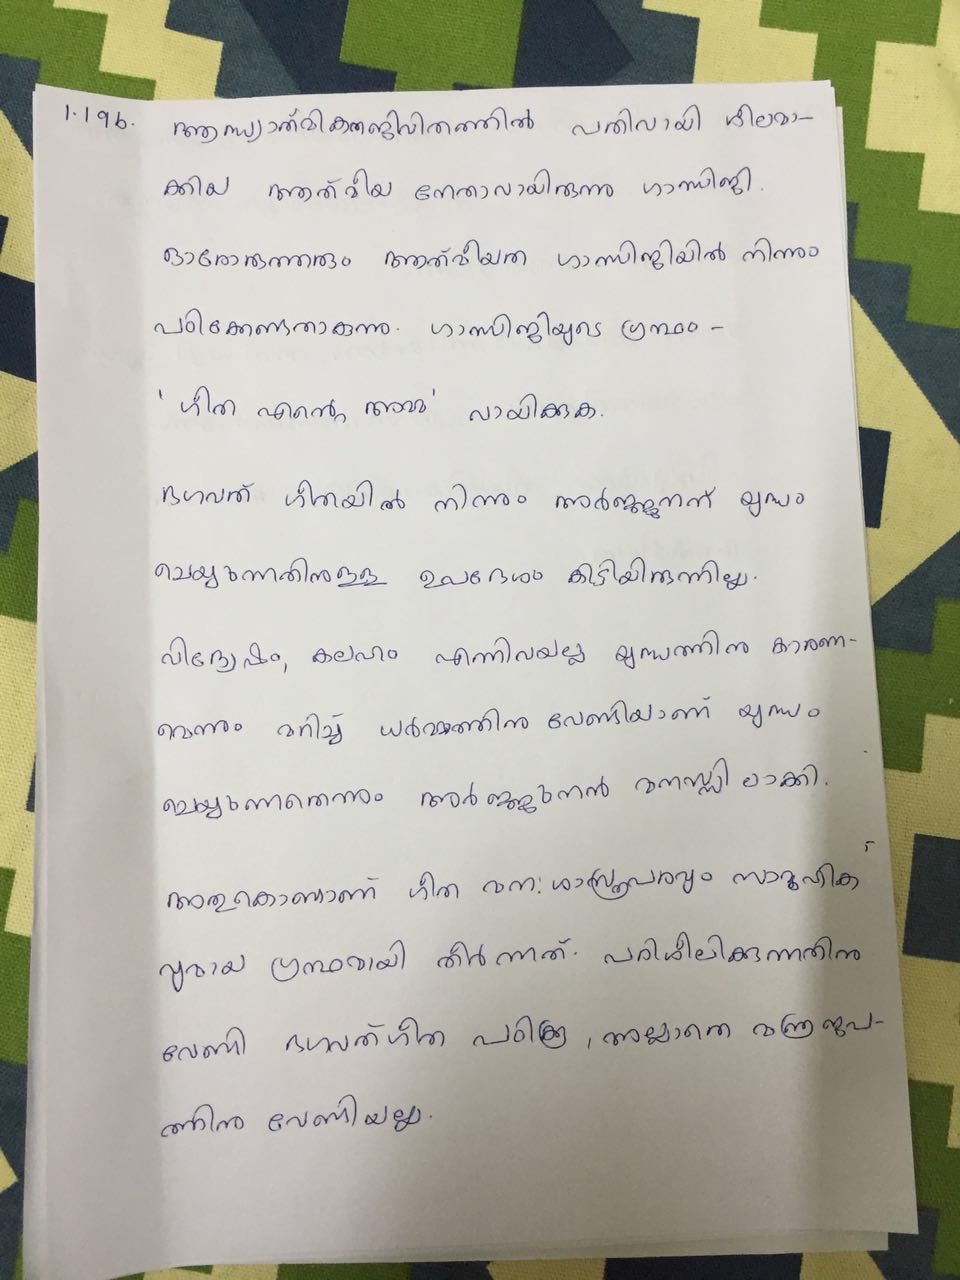 1.196. ആദ്ധ്യാത്മികജീവിതത്തിൽ പതിവായി ശീലമാ-
ക്കിയ ആത്മീയ നേതാവായിരുന്നു ഗാന്ധിജി.
ഓരോരുത്തരും ആത്മീയത ഗാന്ധിജിയിൽ നിന്നും
പഠിക്കേണ്ടതാകുന്നു. ഗാന്ധിജിയുടെ ഗ്രന്ഥം -
'ഗീത എന്റെ അമ്മ' വായിക്കുക.
ഭഗവത് ഗീതയിൽ നിന്നും അർജ്ജുനന് യുദ്ധം
ചെയ്യുന്നതിനുള്ള ഉപദേശം കിട്ടിയിരുന്നില്ല.
വിദ്വേഷം, കലഹം എന്നിവയല്ല യുദ്ധത്തിനു കാരണ-
മെന്നും മറിച്ച് ധർമ്മത്തിനു വേണ്ടിയാണ് യുദ്ധം
ചെയ്യുന്നതെന്നും അർജ്ജുനൻ മനസ്സിലാക്കി.
അതുകൊണ്ടാണ് ഗീത മന:ശാസ്ത്രപരവും സാമൂഹിക
വുമായ ഗ്രന്ഥമായി തീർന്നത്. പരിശീലിക്കുന്നതിനു
വേണ്ടി ഭഗവത്ഗീത പഠിക്കൂ, അല്ലാതെ മന്ത്രജപ-
ത്തിനു വേണ്ടിയല്ല.